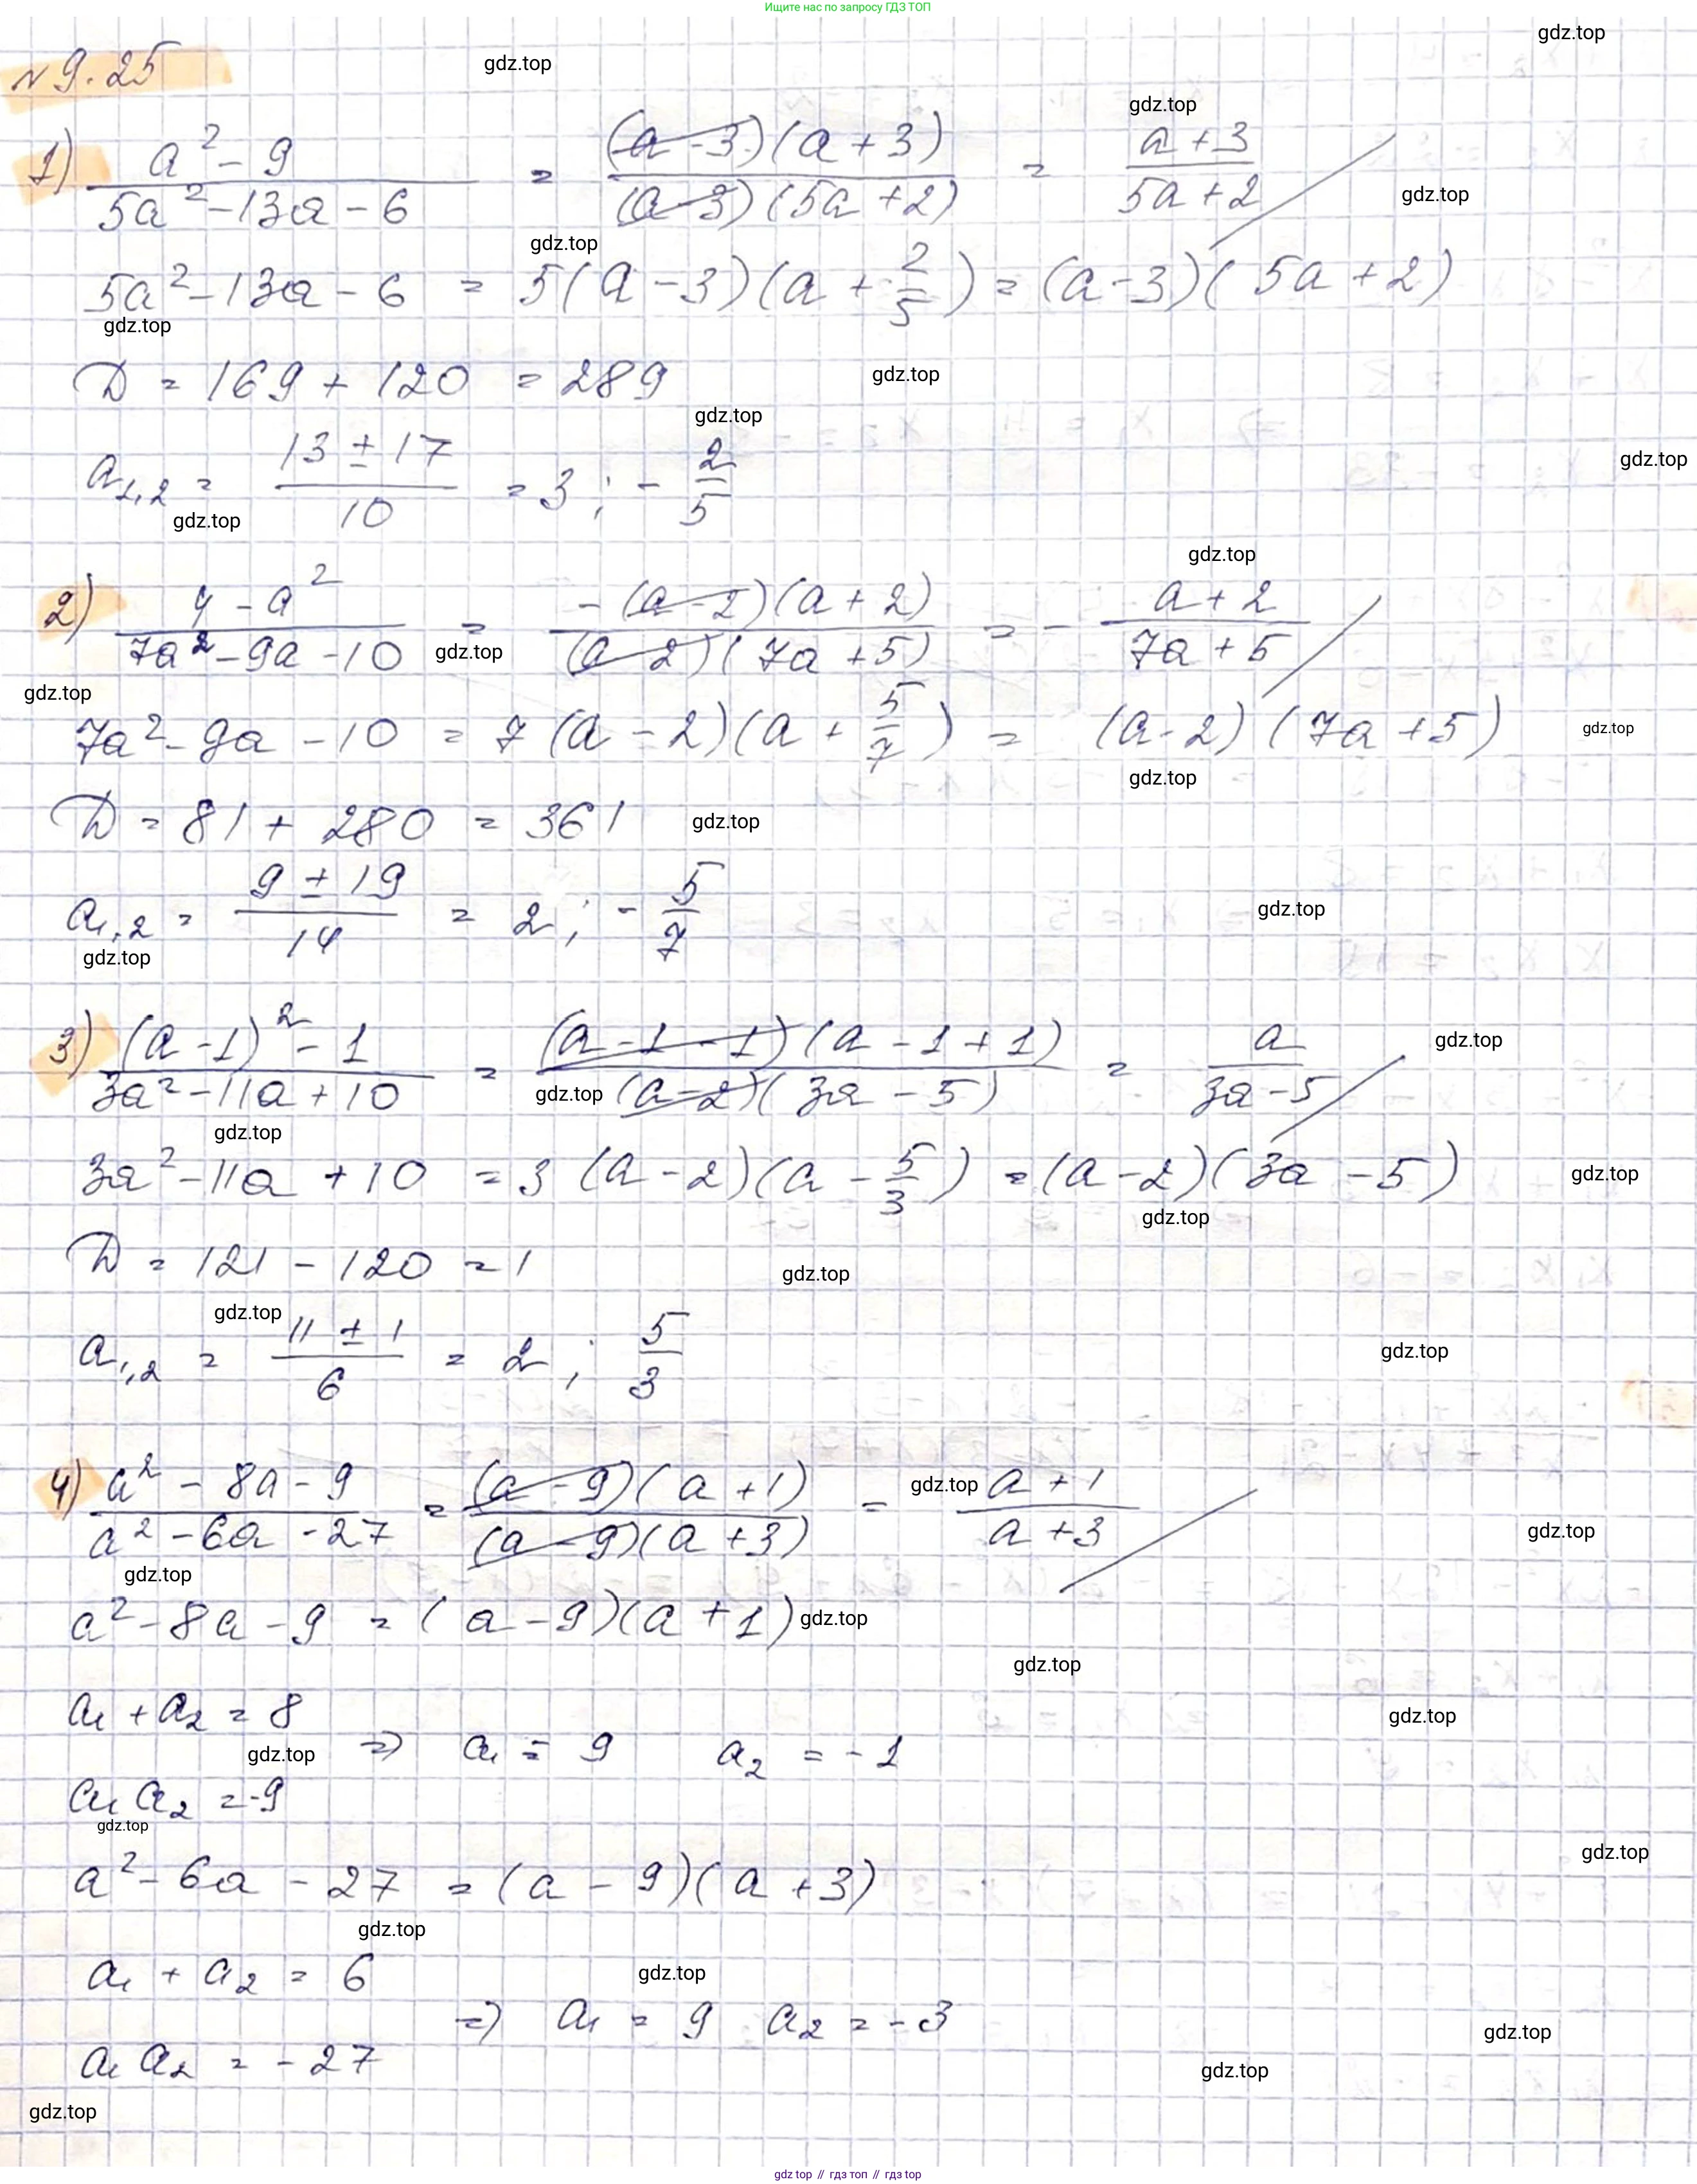 Ищите нас по запросу ГДЗ ТОП
№ 9.25
1) (a² - 9)/(5a² - 13a - 6) = ((a - 3)(a + 3))/((a - 3)(5a + 2)) = (a + 3)/(5a + 2)
5a² - 13a - 6 = 5(a - 3)(a + 2/5) = (a - 3)(5a + 2)
D = 169 + 120 = 289
a₁,₂ = (13 ± 17)/10 = 3 ; - 2/5
2) (4 - a²)/(7a² - 9a - 10) = (-(a - 2)(a + 2))/((a - 2)(7a + 5)) = - (a + 2)/(7a + 5)
7a² - 9a - 10 = 7(a - 2)(a + 5/7) = (a - 2)(7a + 5)
D = 81 + 280 = 361
a₁,₂ = (9 ± 19)/14 = 2 ; - 5/7
3) ((a - 1)² - 1)/(3a² - 11a + 10) = ((a - 1 - 1)(a - 1 + 1))/((a - 2)(3a - 5)) = a/(3a - 5)
3a² - 11a + 10 = 3(a - 2)(a - 5/3) = (a - 2)(3a - 5)
D = 121 - 120 = 1
a₁,₂ = (11 ± 1)/6 = 2 ; 5/3
4) (a² - 8a - 9)/(a² - 6a - 27) = ((a - 9)(a + 1))/((a - 9)(a + 3)) = (a + 1)/(a + 3)
a² - 8a - 9 = (a - 9)(a + 1)
a₁ + a₂ = 8
⇒ a₁ = 9 a₂ = -1
a₁ a₂ = -9
a² - 6a - 27 = (a - 9)(a + 3)
a₁ + a₂ = 6
⇒ a₁ = 9 a₂ = -3
a₁ a₂ = -27
gdz.top // гдз топ // гдз top